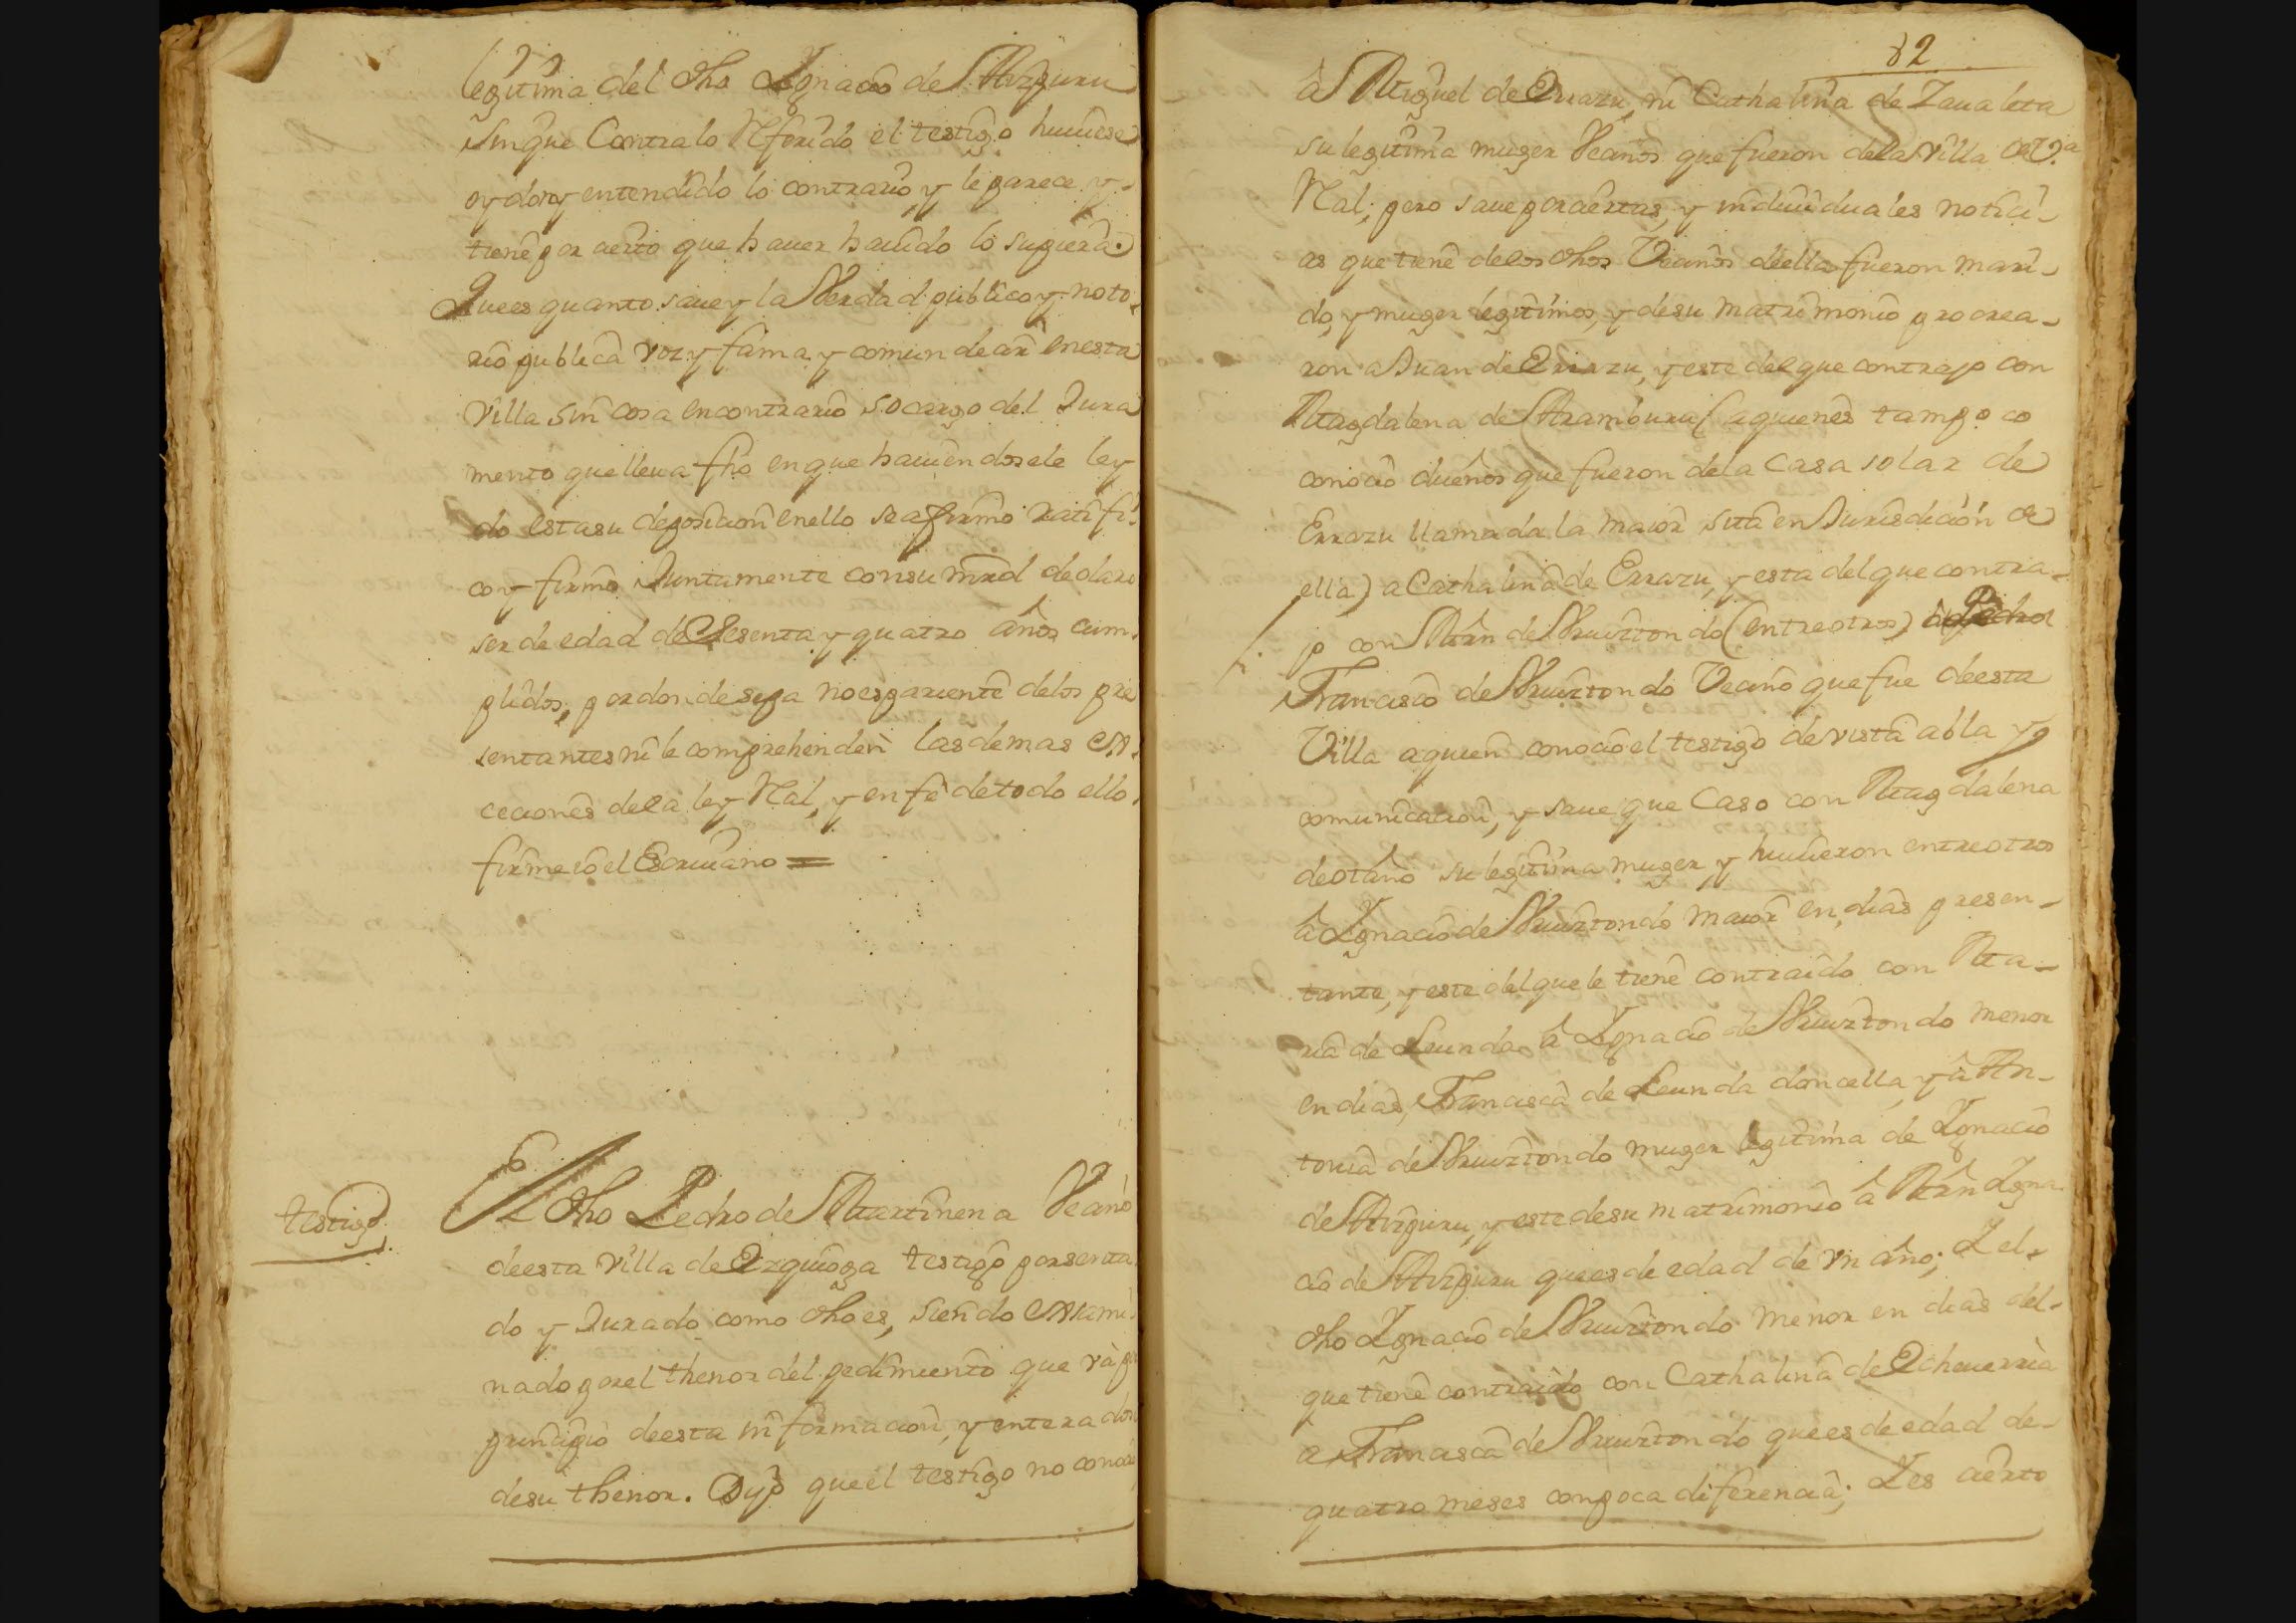 legitima del dho Ygnacio de Aizpuru
sinque Contra lo Referido el testigo huuiese
oydo ny entendido lo contrario, y le parece y
tiene por cierto que hauer hauido lo supiera.
Que es quanto saue y la Verdad publico y noto-
rio publica voz y fama y comun decir en esta
Villa sin cosa en contrario so cargo del Jura
mento que lleua fho en que hauiendosele ley
do esta su deposicion en ello se afirmo ratifi-
co y firmo Juntamente con su mrd declaro
ser de edad de Sesenta y quatro años cum-
plidos, por donde sepa no es pariente de los pre
sentantes ni le comprehenden las demas ex-
cepciones de la ley Real, y en fe de todo ello
firme io el Escriuano =
testigo
El dho Pedro de Martinena Vecino
de esta Villa de Ezquioga testigo presenta
do y Jurado como dho es, siendo exami
nado por el thenor del pedimiento que và por
principio de esta informacion, y enterado
de su thenor. Dijo que el testigo no conocio
82
à Miguel de Errazu, ni Cathalina de Zaualeta
su legitima muger Vecinos que fueron de la Villa de V.a
Real; pero saue por ciertas, y indiuiduales notici-
as que tiene de los dhos Vecinos de ella fueron mari-
do, y muger legitimos, y de su matrimonio procrea-
ron a Juan de Errazu, y este del que contrajo con
Magdalena de Aramburu (a quienes tampoco
conocio dueños que fueron de la Casa solar de
Errazu llamada la maior sita en Jurisdicion de
ella) a Cathalina de Errazu, y esta del que contra-
jo con Mrn de Vruiztondo (entre otros) à Pedro
Francisco de Vruiztondo Vecino que fue de esta
Villa a quien conocio el testigo de vista abla y
comunicacion, y saue que Caso con Magdalena
de otaño su legitima muger y huuieron entre otros
à Ygnacio de Vruiztondo maior en dias presen-
tante, y este del que le tiene contraido con Ma-
ria de Leunda à Ygnacio de Vruiztondo menor
en dias, Francisca de Leunda doncella, y à An-
tonia de Vruiztondo muger legitima de Ygnacio
de Aizpuru, y este de su matrimonio à Mrn Ygna
cio de Aizpuru que es de edad de vn año; Y el
dho Ygnacio de Vruiztondo menor en dias del
que tiene contraido con Cathalina de Echeuerria
a Francisca de Vruiztondo que es de edad de
quatro meses con poca diferencia; Y es cierto